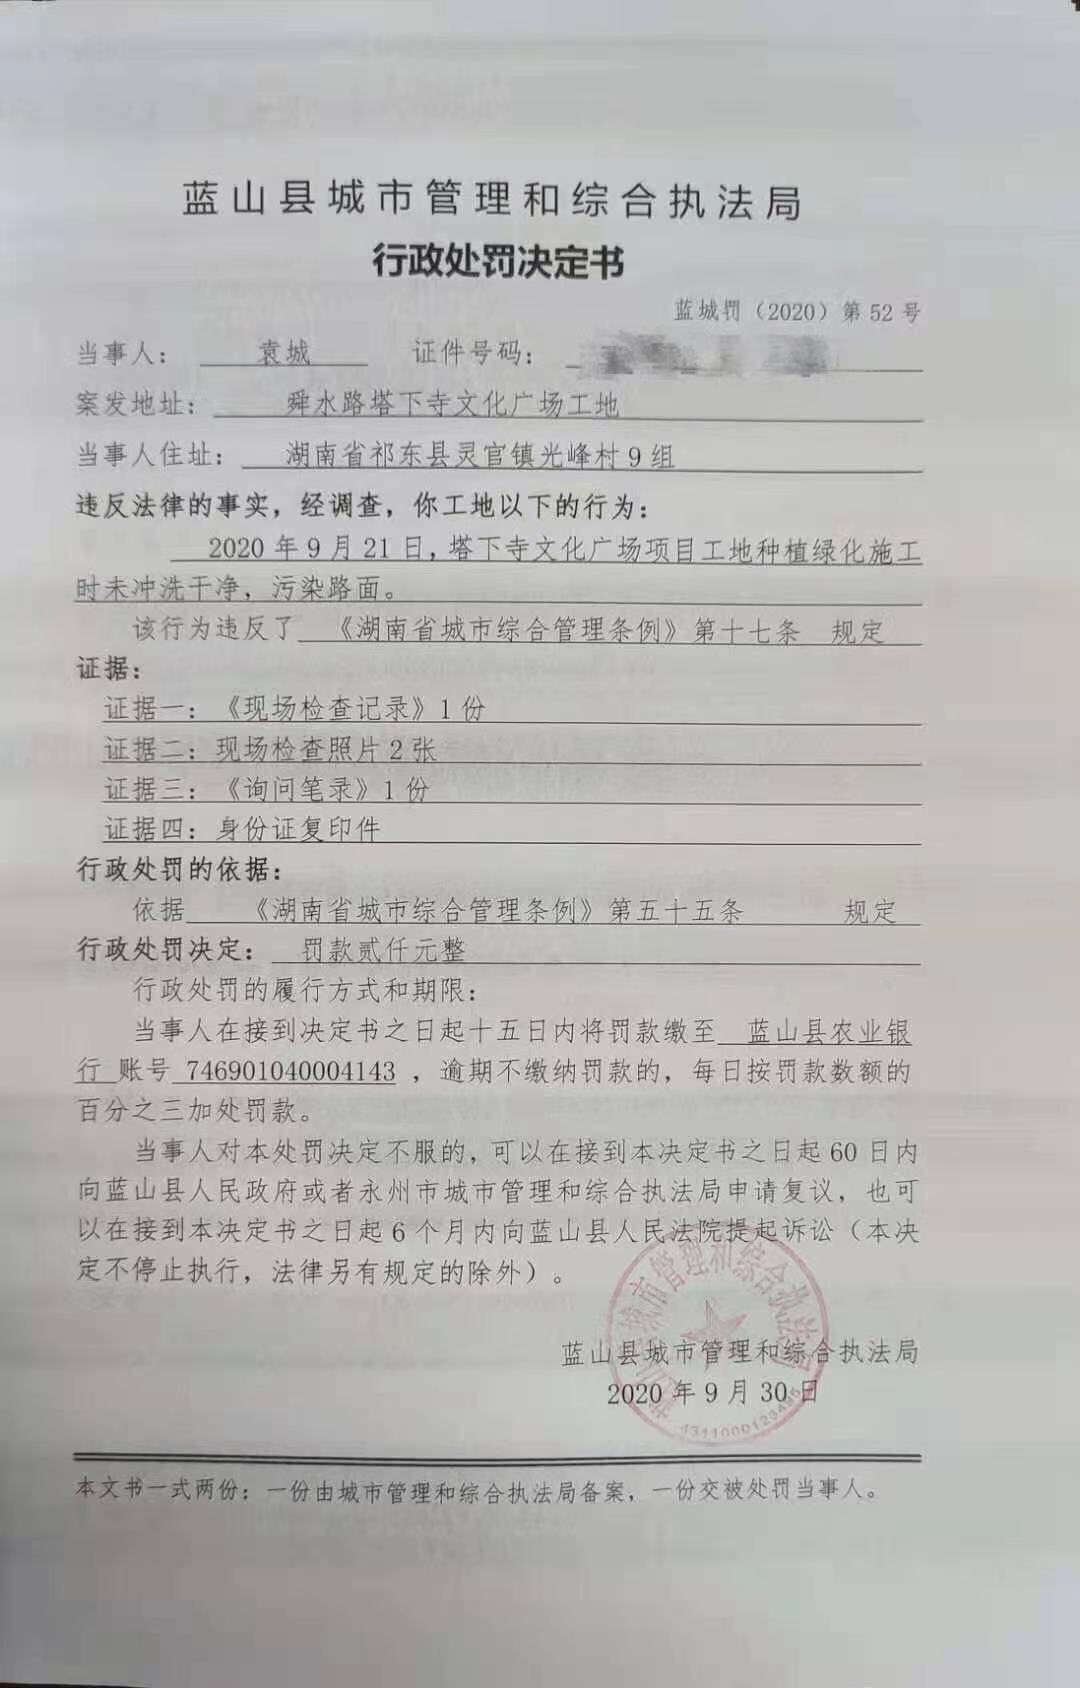 蓝山县城市管理和综合执法局
行政处罚决定书
蓝城罚（2020）第 52 号
当事人： 袁城 证件号码：
案发地址： 舜水路塔下寺文化广场工地
当事人住址： 湖南省祁东县灵官镇光峰村 9 组
违反法律的事实，经调查，你工地以下的行为：
2020 年 9 月 21 日，塔下寺文化广场项目工地种植绿化施工
时未冲洗干净，污染路面。
该行为违反了 《湖南省城市综合管理条例》第十七条 规定
证据：
证据一：《现场检查记录》1 份
证据二：现场检查照片 2 张
证据三：《询问笔录》1 份
证据四：身份证复印件
行政处罚的依据：
依据 《湖南省城市综合管理条例》第五十五条 规定
行政处罚决定： 罚款贰仟元整
行政处罚的履行方式和期限：
当事人在接到决定书之日起十五日内将罚款缴至 蓝山县农业银
行 账号 746901040004143 ，逾期不缴纳罚款的，每日按罚款数额的
百分之三加处罚款。
当事人对本处罚决定不服的，可以在接到本决定书之日起 60 日内
向蓝山县人民政府或者永州市城市管理和综合执法局申请复议，也可
以在接到本决定书之日起 6 个月内向蓝山县人民法院提起诉讼（本决
定不停止执行，法律另有规定的除外）。
蓝山县城市管理和综合执法局
蓝山县城市管理和综合执法局
2020 年 9 月 30 日
本文书一式两份：一份由城市管理和综合执法局备案，一份交被处罚当事人。